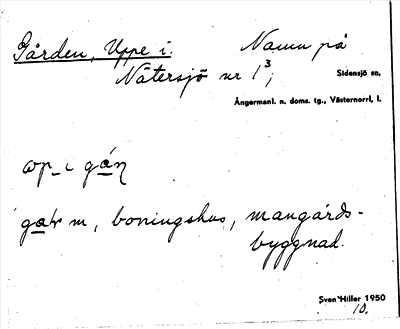 Gården, Uppe i. Namn på
Nätersjö nr 1³;
Sidensjö sn,
Ångermanl. n. doms. tg., Västernorrl, l.
boningshus, mangårds-
byggnad.
Sven Hiller 1950
10.